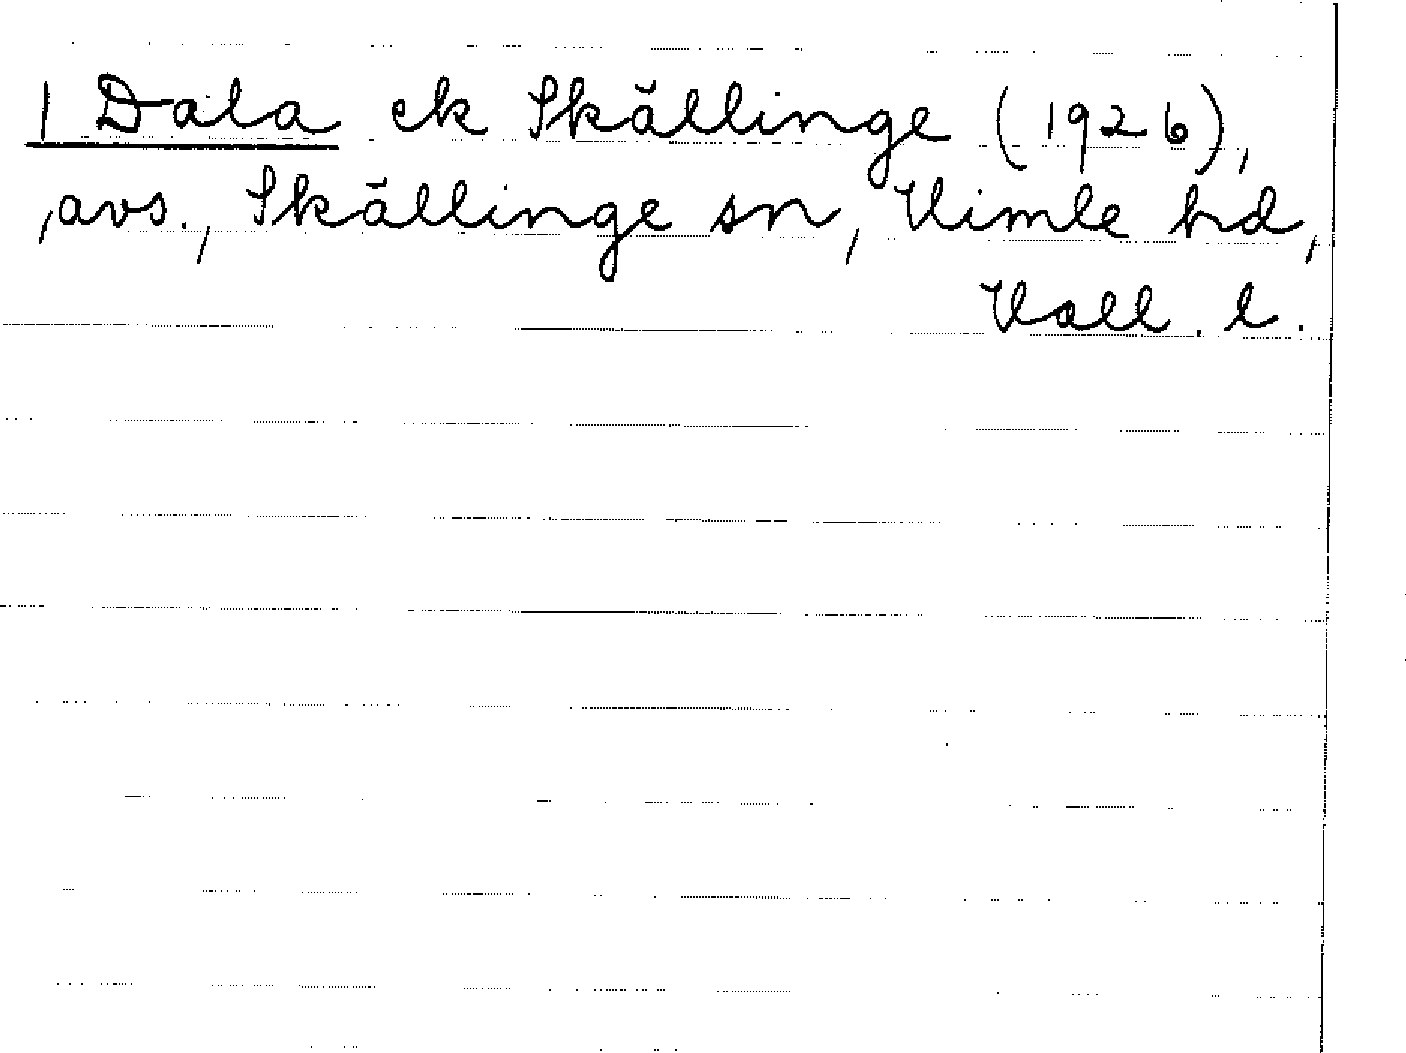 1 Dala ek Skällinge (1926),
,avs., Skällinge sn, Himle hd,
Hall. l.